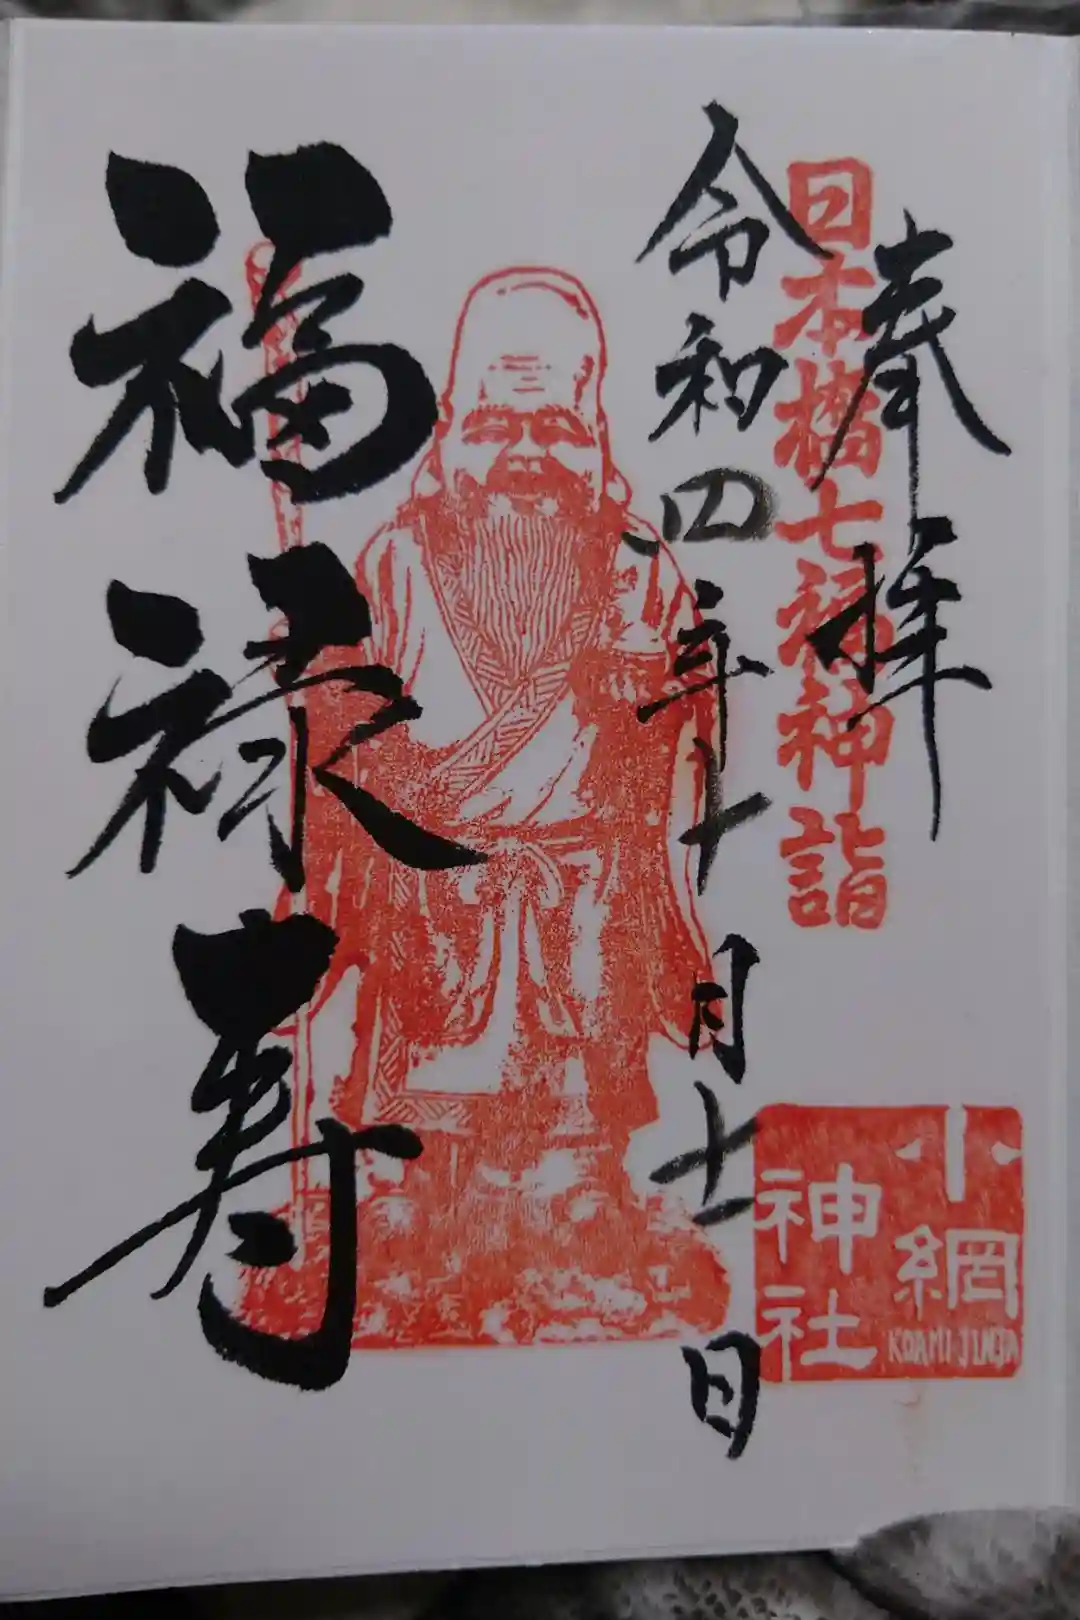 奉拝
日本橋七福神詣
令和四年十月十一日
福禄寿
小網
神社
KOAMI JINJA